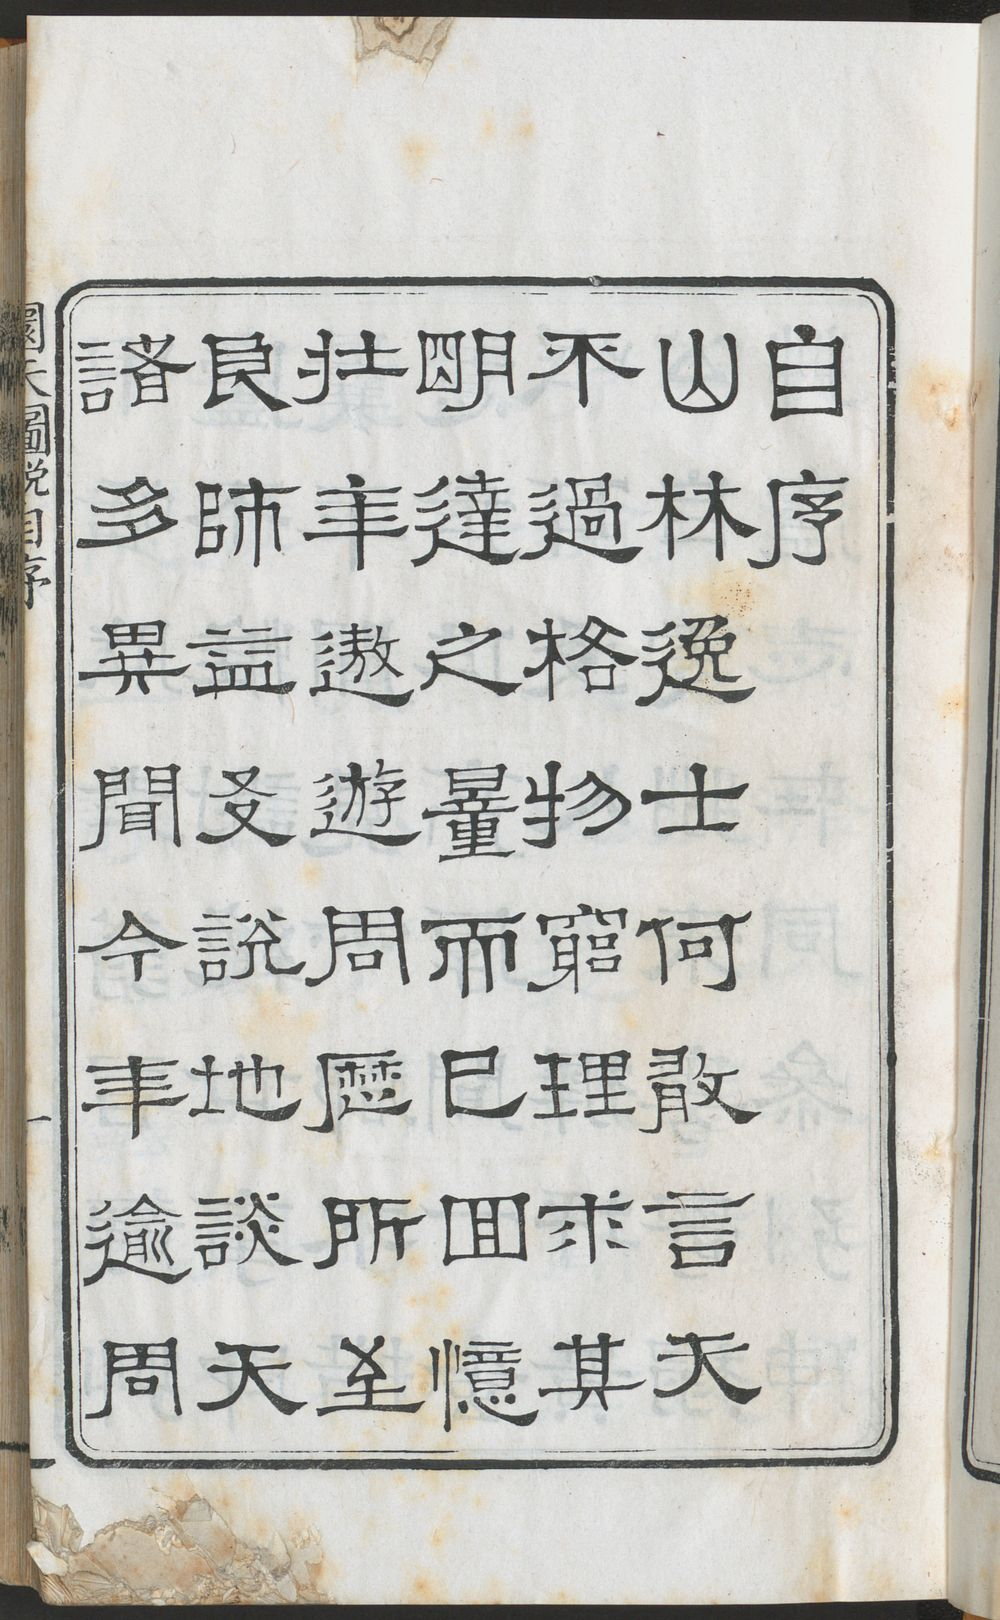 自序
山林逸士何敢言天
不過格物窮理求其
明達之量而已回憶
壯年遨遊周歷所至
良師益友說地談天
諸多異聞今年逾周
圜天圖說自序
一